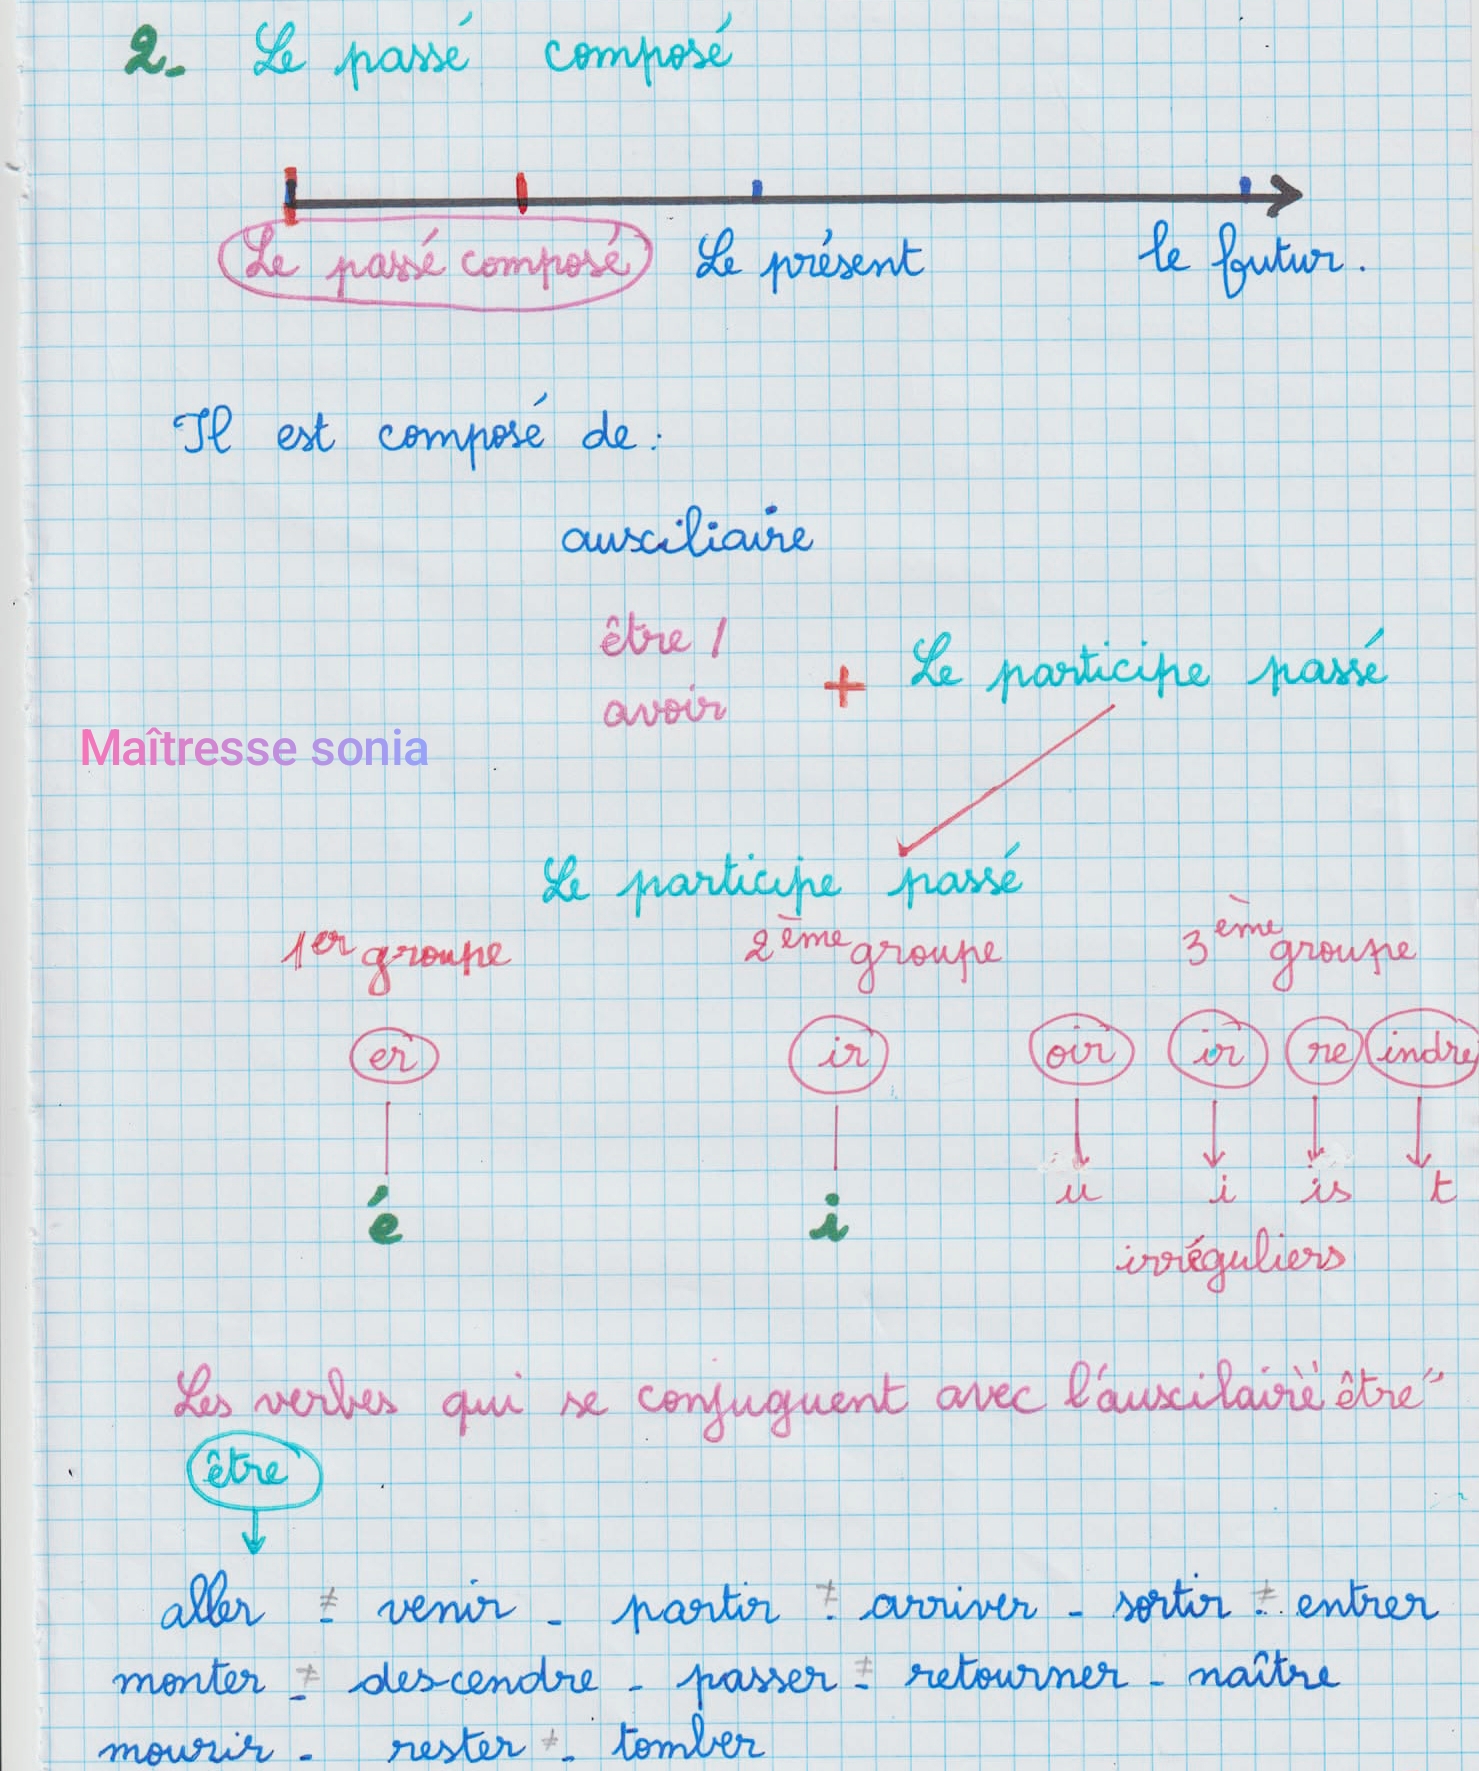 2. Le passé composé
Le passé composé Le présent le futur.
Il est composé de :
auxciliaire
être /
avoir
+ Le participe passé
Maîtresse sonia
Le participe passé
1er groupe 2ème groupe 3ème groupe
er ir oir ir re indre
é i u i is t
irréguliers
Les verbes qui se conjuguent avec l'auxcilaire "être"
être
aller ≠ venir - partir ≠ arriver - sortir ≠ entrer
monter ≠ descendre - passer ≠ retourner - naître
mourir - rester ≠ tomber